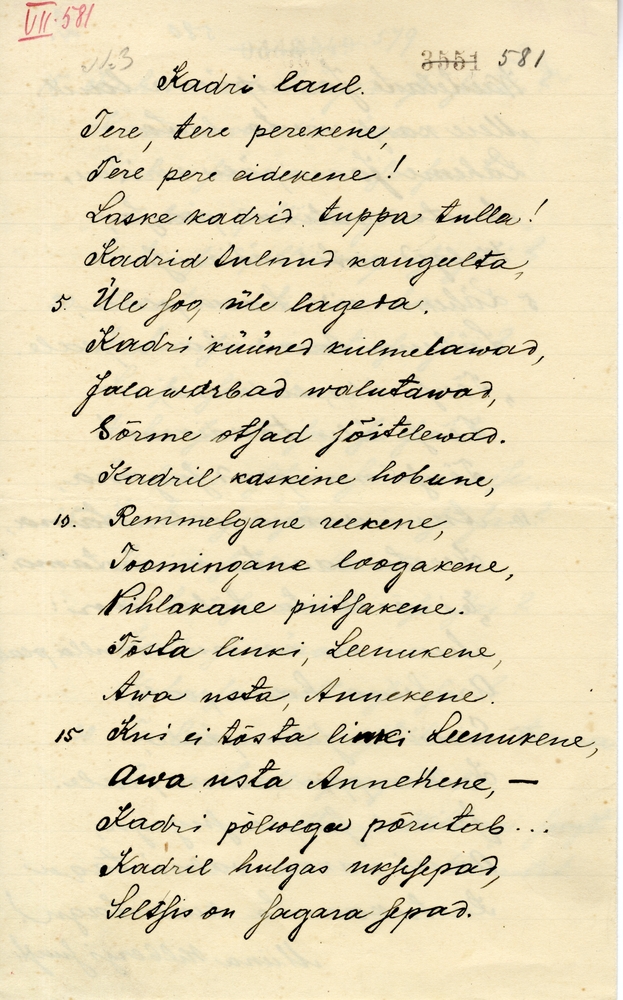 VII. 581
3551 581
Kadri laul.
Tere, tere perekene,
Tere pere eidekene!
Laske kadrid tuppa tulla!
Kadrid tulnud kaugeelta,
5. Üle soo, üle lageda.
Kadri küüned külmetawad,
Jalawarbad walutawad,
Sõrme otsad sõitelewad.
Kadril kaskine hobune,
10. Remmelgane reekene,
Toomingane loogakene,
Pihlakane piitsakene.
Tõsta linki, Leenukene,
Awa usta, Annekene.
15 Kui ei tõsta linki Leenukene,
Awa usta Annekene, —
Kadri põlwega põrutab...
Kadril hulgas uksesepad,
Seltsis on sagara sepad.